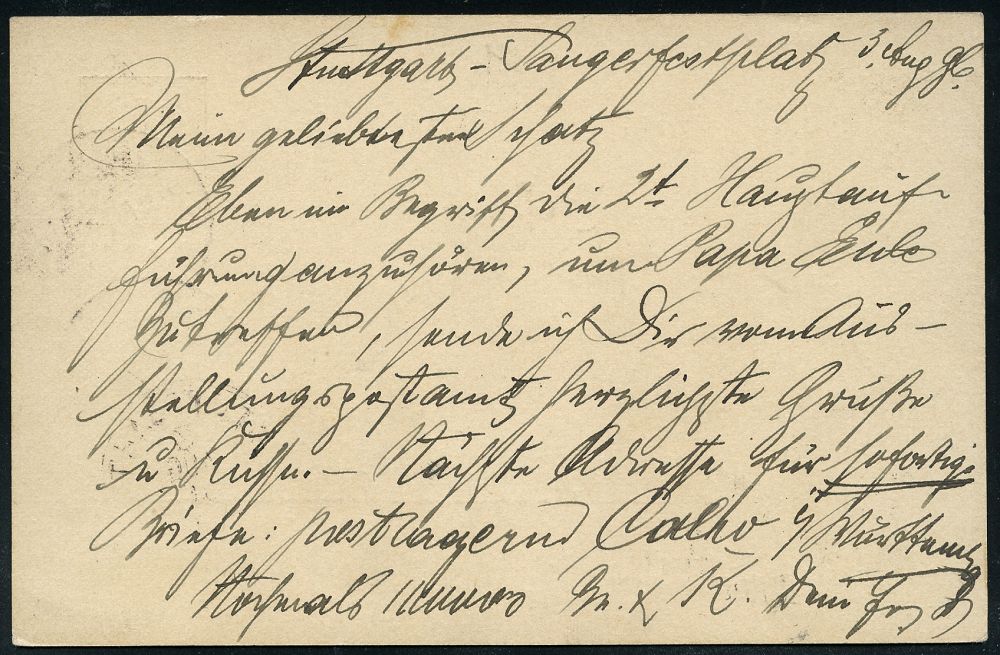 Stuttgart – Sängerfestplatz 3. Aug 96.
Mein geliebtester Schatz
Eben im Begriff, die 2t. Hauptauf-
führung anzuhören, um Papa
zutreffen, sende ich Dir vom Aus-
stellungspostamt herzlichste Grüße
u Küsse. – Nächste Adresse für sofortige
Briefe: postlagernd Calw i/ Württembg
Nochmals Gr. & K. Dein